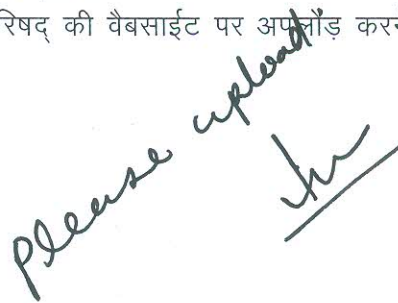 रिषद् की वैबसाईट पर अपलौड़ कर
please upload